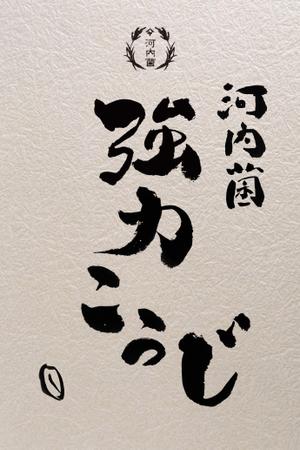 河内菌
河内菌
強力こうじ